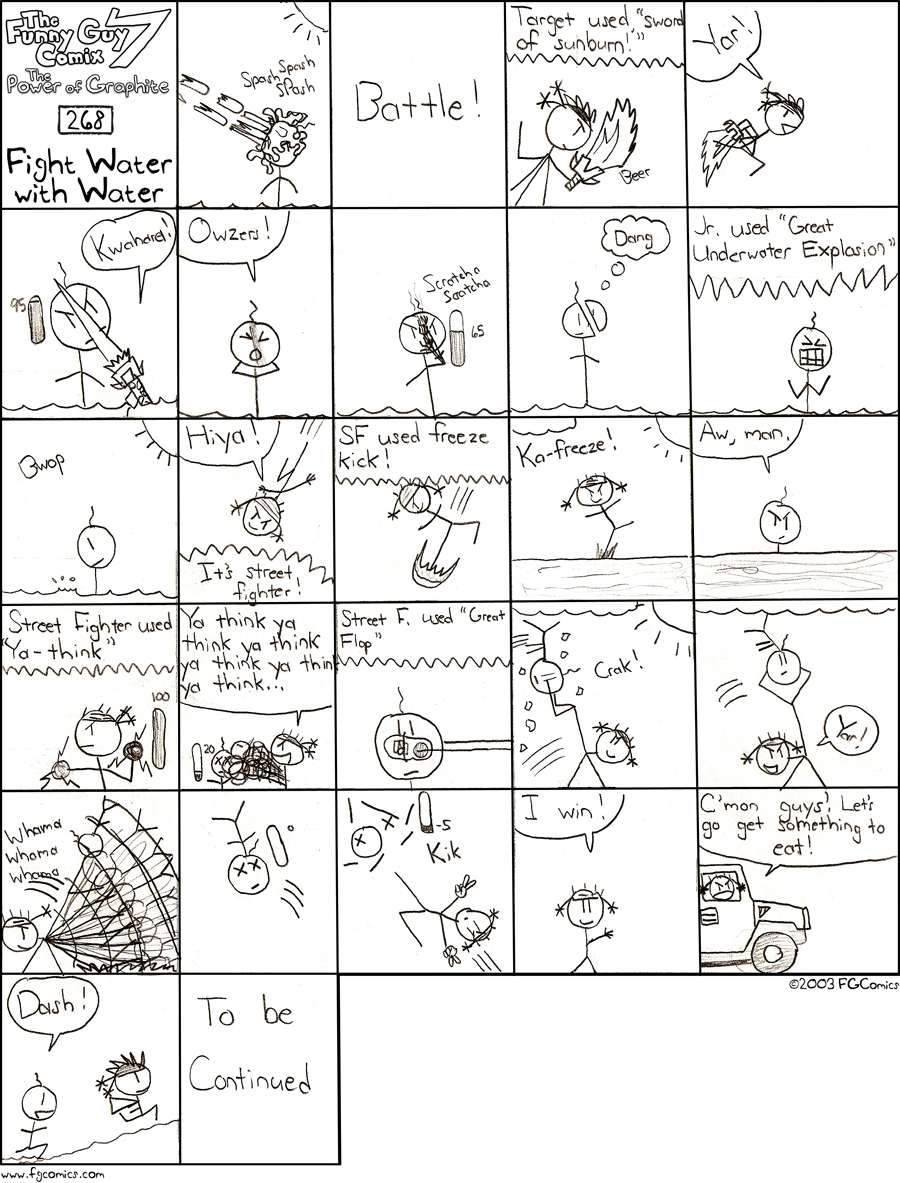 The
Funny Guy
Comix 7
The
Power of Graphite
268
Fight Water
with Water
Spash Spash
Spash
Battle!
Target used "sword
of sunburn!"
Beer
Yar!
Kwahara!
95
Owzers!
Scratcha
Scatcha
65
Dang
Jr. used "Great
Underwater Explosion"
Bwop
Hiya!
It's street
fighter!
SF used freeze
kick!
Ka-freeze!
Aw, man.
Street Fighter used
"Ya-think"
100
Ya think ya
think ya think
ya think ya thin
ya think...
20
Street F. used "Great
Flop"
Crak!
Yar!
Whama
Whama
Whama
0
-5
Kik
I win!
C'mon guys! Let's
go get something to
eat!
©2003 FGComics
Dash!
To be
Continued
www.fgcomics.com